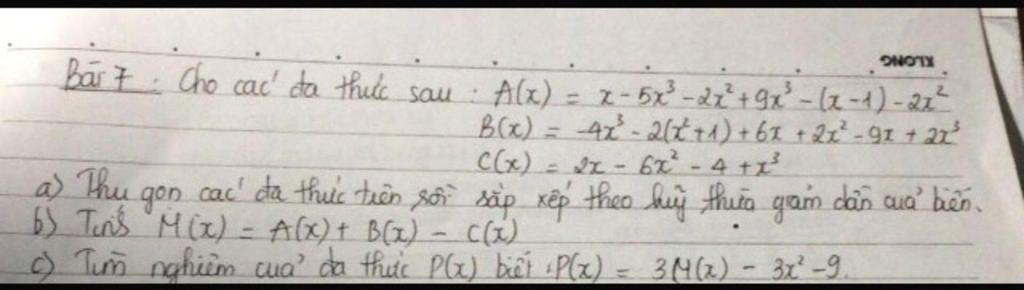 KLONG
Bài 7 : Cho các đa thức sau : A(x) = x - 5x³ - 2x² + 9x³ - (x - 1) - 2x²
B(x) = -4x³ - 2(x² + 1) + 6x + 2x² - 9x + 2x³
C(x) = 2x - 6x² - 4 + x³
a) Thu gọn các đa thức trên rồi sắp xếp theo luỹ thừa giảm dần của biến.
b) Tính M(x) = A(x) + B(x) - C(x)
c) Tìm nghiệm của đa thức P(x) biết : P(x) = 3M(x) - 3x² - 9.